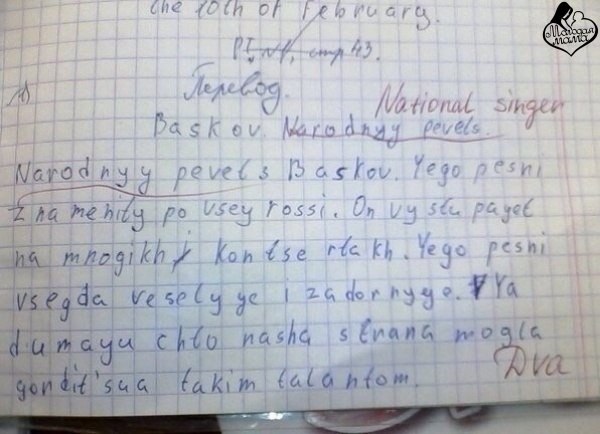 the 10th of February.
P I, №1, стр 43.
Перевод.
National singer
Baskov. Narodnyy pevets.
Narodnyy pevets Baskov. Yego pesni
znamenity po vsey rossi. On vystupayet
na mnogikh kontsertakh. Yego pesni
vsegda veselyye i zadornyye. Ya
dumayu chto nasha strana mogla
gordit'sua takim talantom.
Dva
Молодая мама